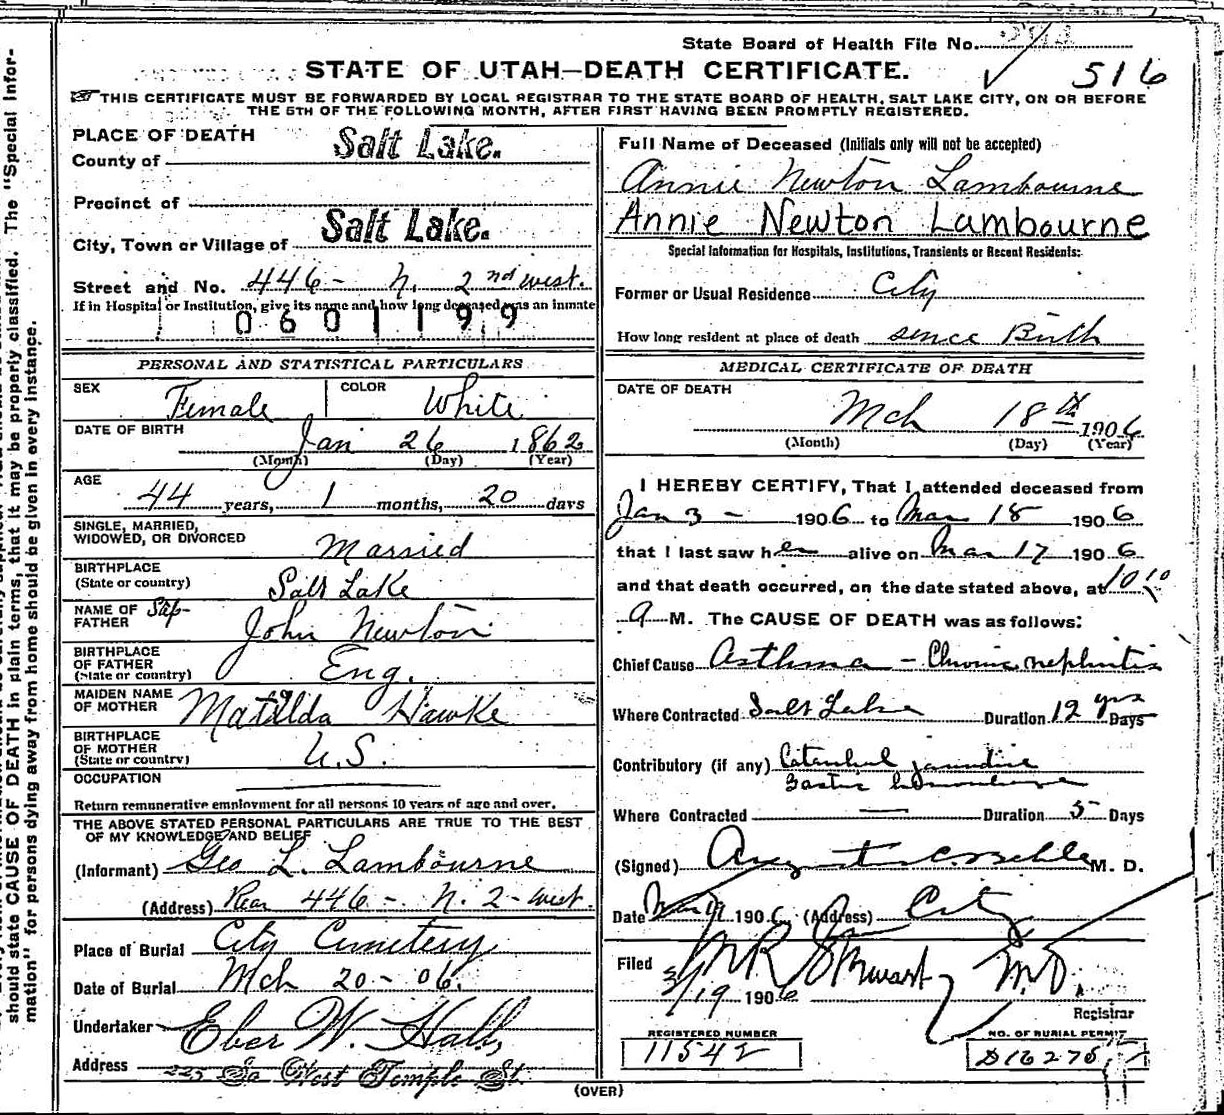 State Board of Health File No.
516
STATE OF UTAH—DEATH CERTIFICATE.
THIS CERTIFICATE MUST BE FORWARDED BY LOCAL REGISTRAR TO THE STATE BOARD OF HEALTH, SALT LAKE CITY, ON OR BEFORE
THE 5TH OF THE FOLLOWING MONTH, AFTER FIRST HAVING BEEN PROMPTLY REGISTERED.
PLACE OF DEATH
County of Salt Lake.
Precinct of
City, Town or Village of Salt Lake.
Street and No. 446- N. 2nd west.
If in Hospital or Institution, give its name and how long deceased was an inmate
0601199
PERSONAL AND STATISTICAL PARTICULARS
SEX Female COLOR White
DATE OF BIRTH Jan 26 1862
(Month) (Day) (Year)
AGE
44 years, 1 months, 20 days
SINGLE, MARRIED,
WIDOWED, OR DIVORCED Married
BIRTHPLACE
(State or country) Salt Lake
NAME OF Step-
FATHER John Newton
BIRTHPLACE
OF FATHER
(State or country) Eng.
MAIDEN NAME
OF MOTHER Matilda Hawke
BIRTHPLACE
OF MOTHER
(State or country) U.S.
OCCUPATION
Return remunerative employment for all persons 10 years of age and over.
THE ABOVE STATED PERSONAL PARTICULARS ARE TRUE TO THE BEST
OF MY KNOWLEDGE AND BELIEF
(Informant) Geo L. Lambourne
(Address) Rear 446- N. 2-west.
Place of Burial City Cemetery
Date of Burial Mch 20-06.
Undertaker Eber W. Hall,
Address 225 So West Temple St.
Full Name of Deceased (Initials only will not be accepted)
Annie Newton Lambourne
Annie Newton Lambourne
Special Information for Hospitals, Institutions, Transients or Recent Residents:
Former or Usual Residence City
How long resident at place of death since Birth
MEDICAL CERTIFICATE OF DEATH
DATE OF DEATH
Mch 18th 1906
(Month) (Day) (Year)
I HEREBY CERTIFY, That I attended deceased from
Jan 3- 1906 to Mar 18 1906
that I last saw her alive on Mar 17 1906
and that death occurred, on the date stated above, at 10 10
a M. The CAUSE OF DEATH was as follows:
Chief Cause Asthma - Chronic nephritis
Where Contracted Salt Lake Duration 12 yrs Days
Contributory (if any) Catarrhal jaundice
Gastric hemorrhage
Where Contracted — Duration 5 Days
(Signed) August M. D.
Date Mar 19 1906 (Address) City
Filed 3/19 1906 M.D.
Registrar
REGISTERED NUMBER
11542
NO. OF BURIAL PERMIT
D16275
(OVER)
should state CAUSE OF DEATH in plain terms, that it may be properly classified. The "Special Infor-
mation" for persons dying away from home should be given in every instance.